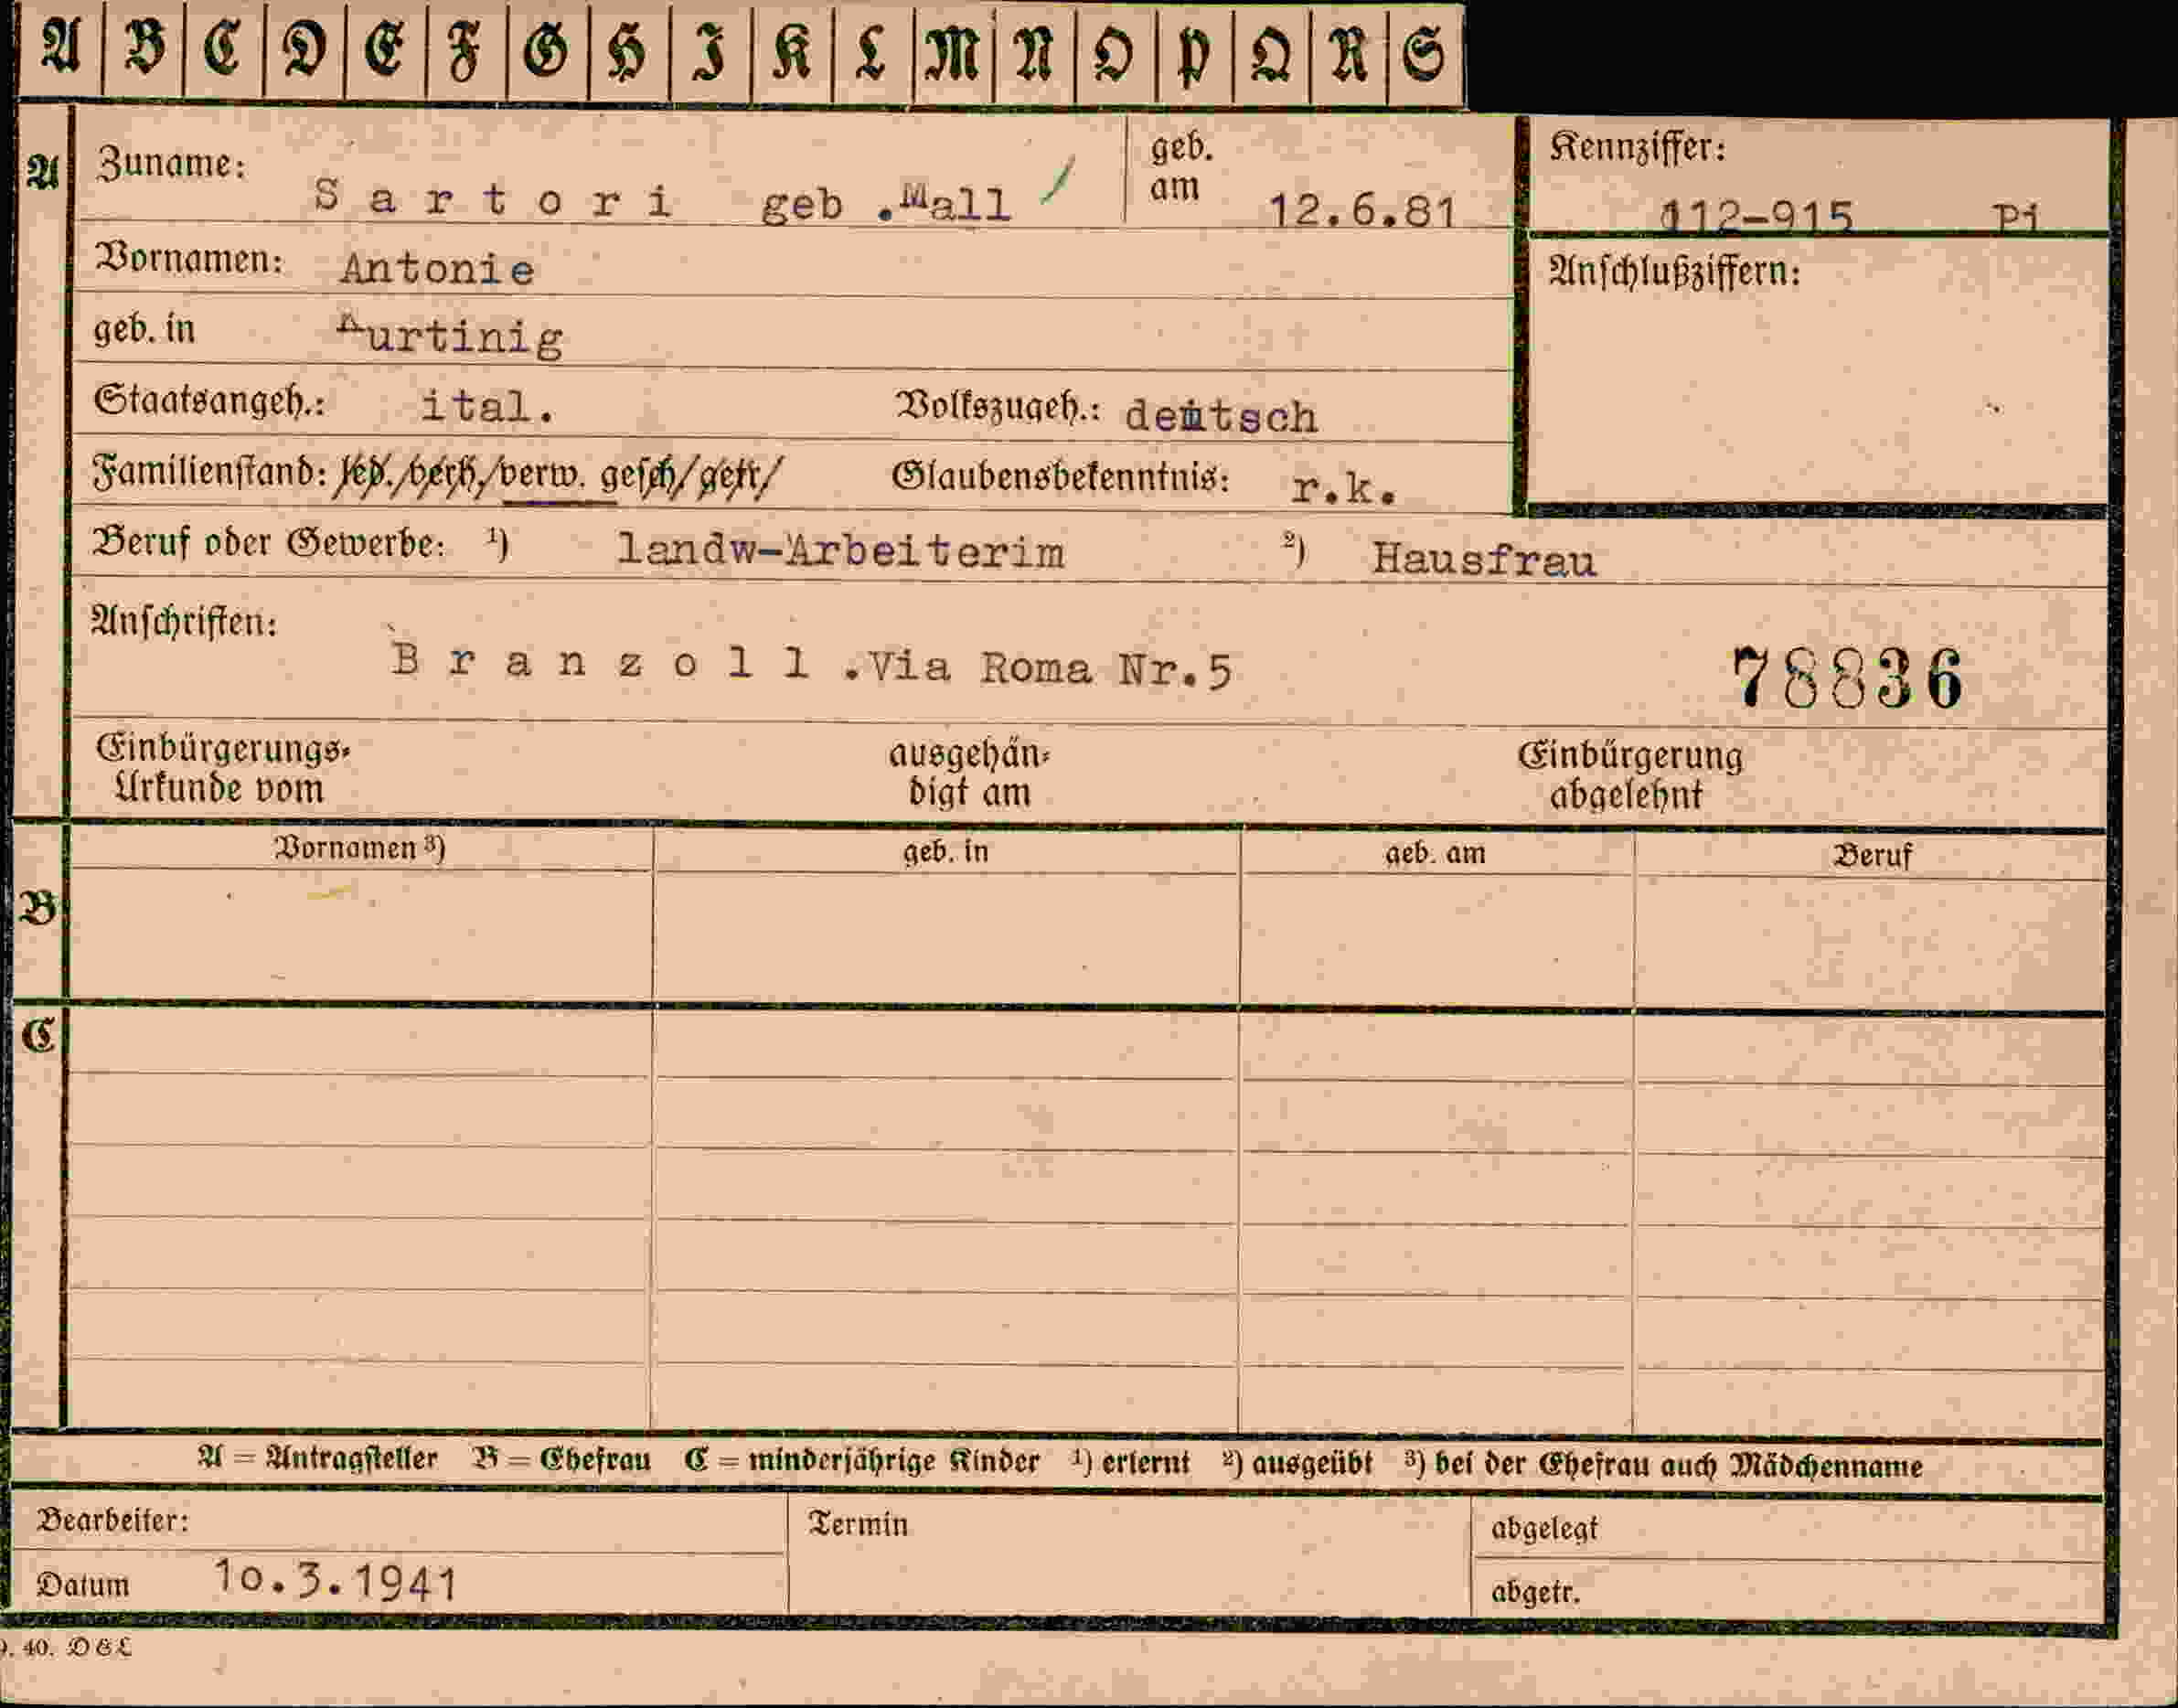 A B C D E F G H I K L M N O P Q R S
A Zuname: Sartori geb .Mall / geb. am 12.6.81 Kennziffer: 112-915 Pi
Vornamen: Antonie Anschlußziffern:
geb. in Kurtinig
Staatsangeh.: ital. Volkszugeh.: deutsch
Familienstand: led./verh./verw. gesch/getr/ Glaubensbekenntnis: r.k.
Beruf oder Gewerbe: 1) landw-Arbeiterim 2) Hausfrau
Anschriften: Branzoll .Via Roma Nr.5 78836
Einbürgerungs- ausgehän- Einbürgerung
Urkunde vom digt am abgelehnt
Vornamen 3) geb. in geb. am Beruf
B
C
A = Antragsteller B = Ehefrau C = minderjährige Kinder 1) erlernt 2) ausgeübt 3) bei der Ehefrau auch Mädchenname
Bearbeiter: Termin abgelegt
Datum 10.3.1941 abgetr.
40. DGL